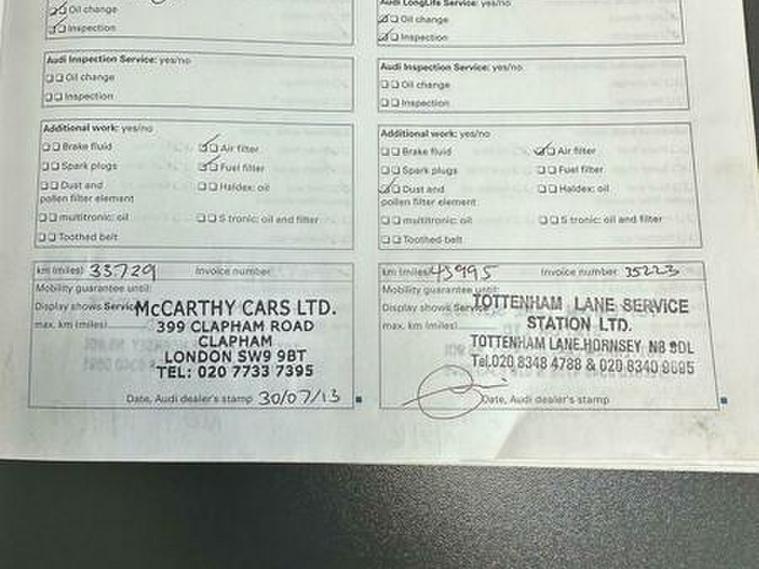 Oil change
Inspection
Audi Inspection Service: yes/no
Oil change
Inspection
Additional work: yes/no
Brake fluid Air filter
Spark plugs Fuel filter
Dust and Haldex: oil
pollen filter element
multitronic: oil S tronic: oil and filter
Toothed belt
km (miles) 33729 Invoice number
Mobility guarantee until:
Display shows Service
max. km (miles)
McCARTHY CARS LTD.
399 CLAPHAM ROAD
CLAPHAM
LONDON SW9 9BT
TEL: 020 7733 7395
Date, Audi dealer's stamp 30/07/13
Audi LongLife Service: yes/no
Oil change
Inspection
Audi Inspection Service: yes/no
Oil change
Inspection
Additional work: yes/no
Brake fluid Air filter
Spark plugs Fuel filter
Dust and Haldex: oil
pollen filter element
multitronic: oil S tronic: oil and filter
Toothed belt
km (miles) 43995 Invoice number 35223
Mobility guarantee until:
Display shows Service
max. km (miles)
TOTTENHAM LANE SERVICE
STATION LTD.
TOTTENHAM LANE.HORNSEY N8 9DL
Tel.020 8348 4788 & 020 8340 9695
Date, Audi dealer's stamp